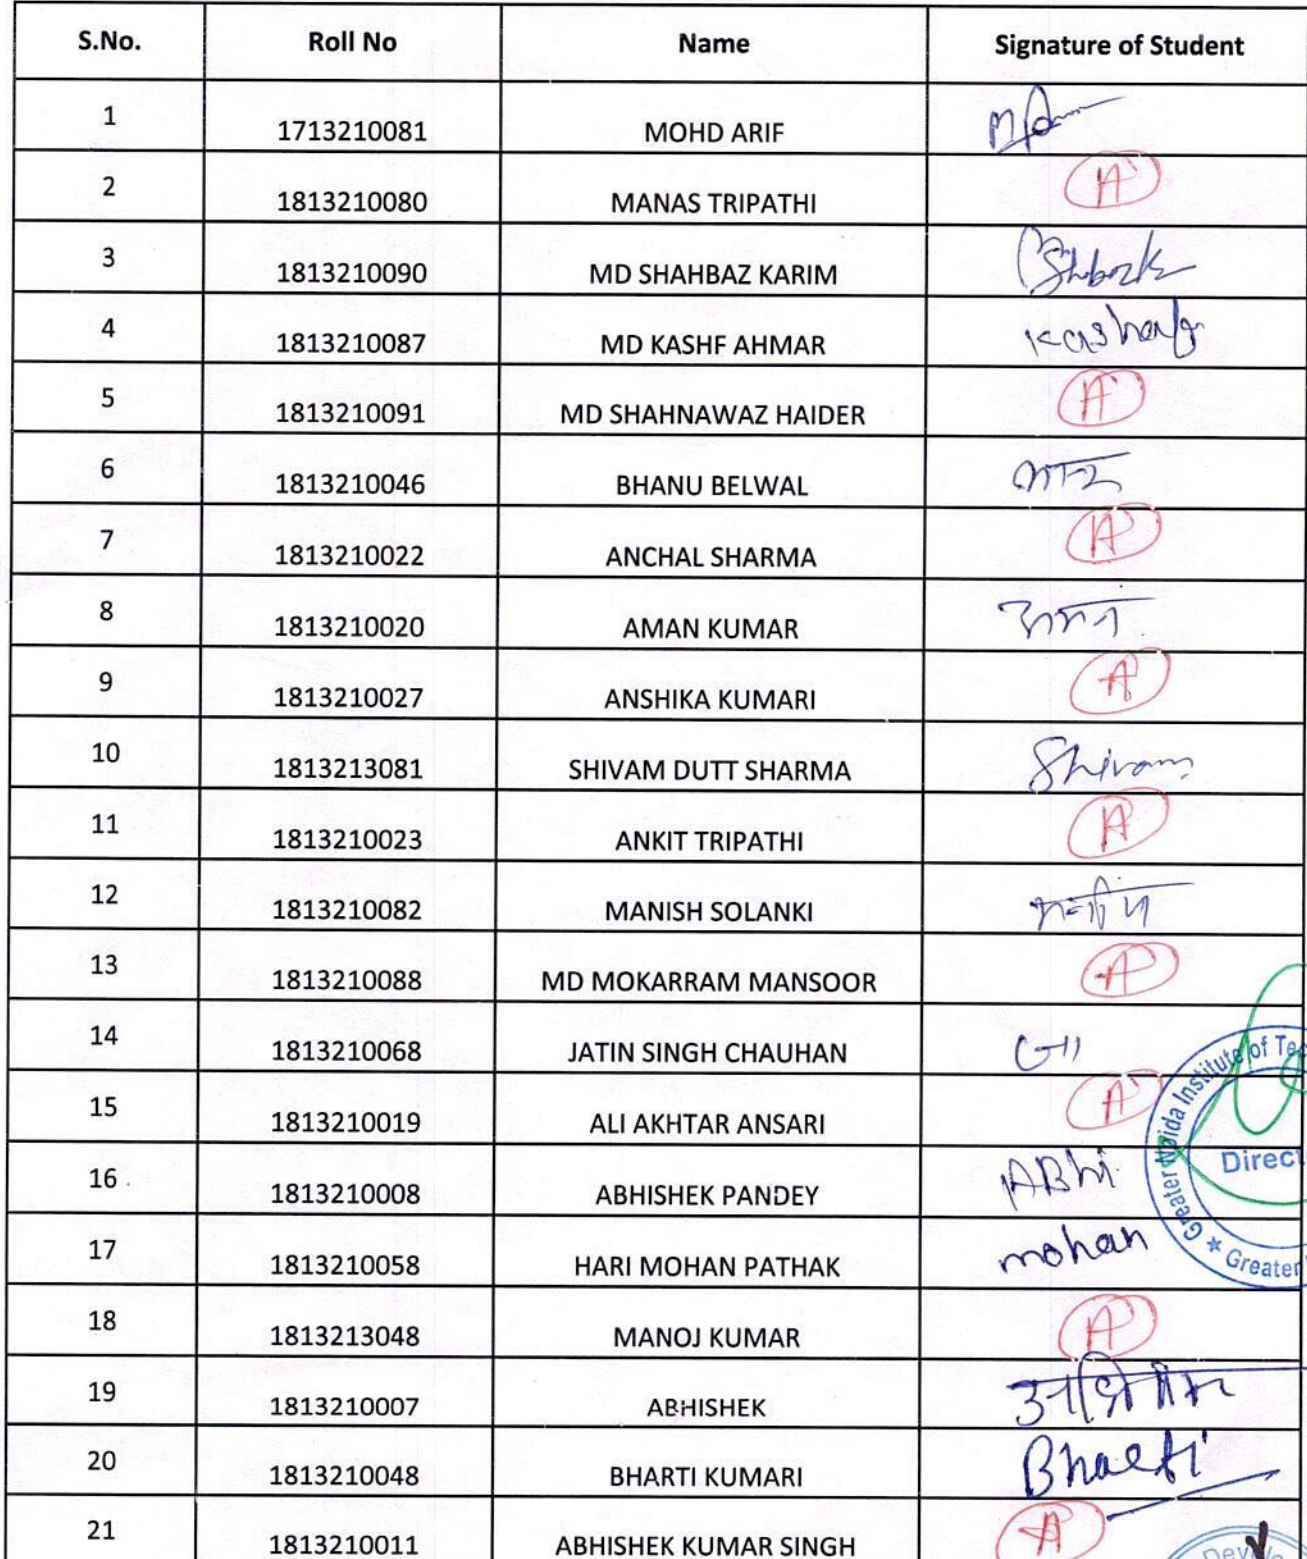 S.No. Roll No Name Signature of Student
1 1713210081 MOHD ARIF
2 1813210080 MANAS TRIPATHI A
3 1813210090 MD SHAHBAZ KARIM
4 1813210087 MD KASHF AHMAR
5 1813210091 MD SHAHNAWAZ HAIDER A
6 1813210046 BHANU BELWAL
7 1813210022 ANCHAL SHARMA A
8 1813210020 AMAN KUMAR अमन
9 1813210027 ANSHIKA KUMARI A
10 1813213081 SHIVAM DUTT SHARMA Shivam
11 1813210023 ANKIT TRIPATHI A
12 1813210082 MANISH SOLANKI
13 1813210088 MD MOKARRAM MANSOOR A
14 1813210068 JATIN SINGH CHAUHAN
15 1813210019 ALI AKHTAR ANSARI A
16 1813210008 ABHISHEK PANDEY ABhi
17 1813210058 HARI MOHAN PATHAK mohan
18 1813213048 MANOJ KUMAR A
19 1813210007 ABHISHEK
20 1813210048 BHARTI KUMARI Bharti
21 1813210011 ABHISHEK KUMAR SINGH A
Greater Noida Institute of Tec
Direct
Greater